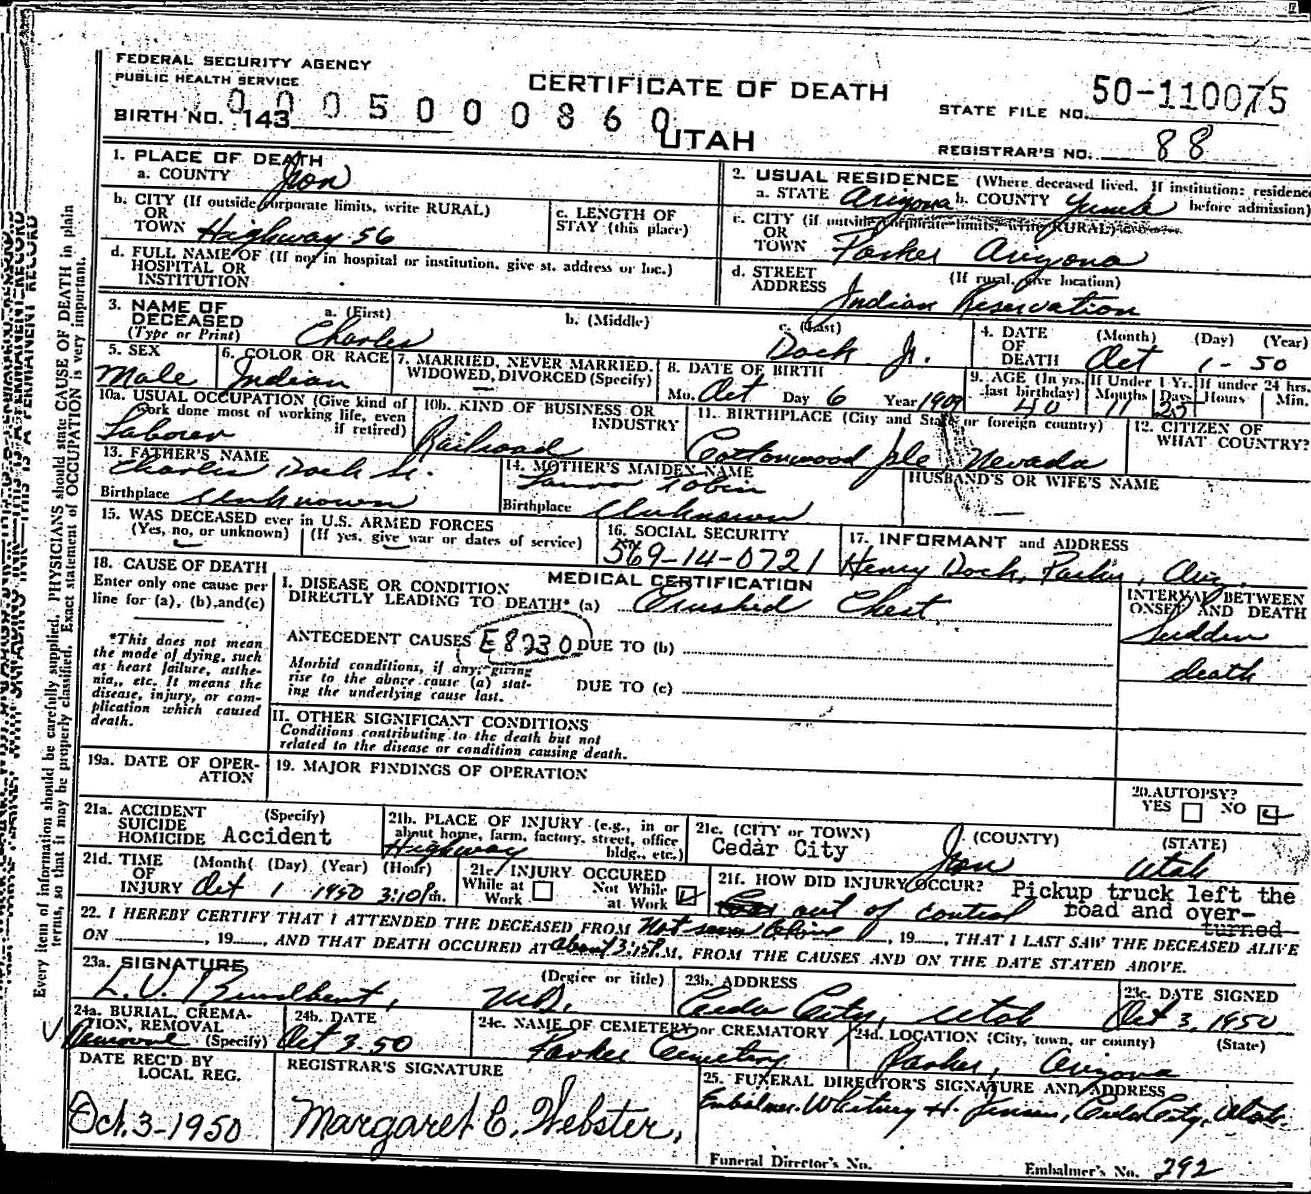 FEDERAL SECURITY AGENCY
PUBLIC HEALTH SERVICE
CERTIFICATE OF DEATH
STATE FILE NO. 50-110075
BIRTH NO. 143 0005000860
UTAH
REGISTRAR'S NO. 88
1. PLACE OF DEATH
a. COUNTY Iron
2. USUAL RESIDENCE (Where deceased lived. If institution: residence
a. STATE Arizona b. COUNTY Yuma before admission)
b. CITY (If outside corporate limits, write RURAL)
OR
TOWN Highway 56
c. LENGTH OF
STAY (this place)
c. CITY (if outside corporate limits, write RURAL)
OR
TOWN Parker Arizona
d. FULL NAME OF (If not in hospital or institution, give st. address or loc.)
HOSPITAL OR
INSTITUTION
d. STREET (If rural, give location)
ADDRESS Indian Reservation
3. NAME OF
DECEASED
(Type or Print)
a. (First) Charles
b. (Middle)
c. (Last) Dock Jr.
4. DATE (Month) (Day) (Year)
OF
DEATH Oct 1 - 50
5. SEX
Male
6. COLOR OR RACE
Indian
7. MARRIED, NEVER MARRIED.
WIDOWED, DIVORCED (Specify)
8. DATE OF BIRTH
Mo. Oct Day 6 Year 1909
9. AGE (In yrs. last birthday) 40
If Under 1 Yr. Months 11 Days 25
If under 24 hrs. Hours Min.
10a. USUAL OCCUPATION (Give kind of
work done most of working life, even
if retired)
Laborer
10b. KIND OF BUSINESS OR
INDUSTRY
Railroad
11. BIRTHPLACE (City and State or foreign country)
Cottonwood Nevada
12. CITIZEN OF
WHAT COUNTRY?
13. FATHER'S NAME
Charles Dock Sr.
Birthplace Unknown
14. MOTHER'S MAIDEN NAME
Laura Tobin
Birthplace Unknown
HUSBAND'S OR WIFE'S NAME
15. WAS DECEASED ever in U.S. ARMED FORCES
(Yes, no, or unknown) (If yes, give war or dates of service)
16. SOCIAL SECURITY
569-14-0721
17. INFORMANT and ADDRESS
Henry Dock, Parker, Ariz.
18. CAUSE OF DEATH
Enter only one cause per
line for (a), (b), and (c)
*This does not mean
the mode of dying, such
as heart failure, asthe-
nia, etc. It means the
disease, injury, or com-
plication which caused
death.
MEDICAL CERTIFICATION
I. DISEASE OR CONDITION
DIRECTLY LEADING TO DEATH* (a) Crushed Chest
INTERVAL BETWEEN
ONSET AND DEATH
Sudden
death
ANTECEDENT CAUSES E8230 DUE TO (b)
Morbid conditions, if any, giving
rise to the above cause (a) stat-
ing the underlying cause last.
DUE TO (c)
II. OTHER SIGNIFICANT CONDITIONS
Conditions contributing to the death but not
related to the disease or condition causing death.
19a. DATE OF OPER-
ATION
19. MAJOR FINDINGS OF OPERATION
20. AUTOPSY?
YES NO
21a. ACCIDENT (Specify)
SUICIDE
HOMICIDE Accident
21b. PLACE OF INJURY (e.g., in or
about home, farm, factory, street, office
bldg., etc.)
Highway
21c. (CITY or TOWN) (COUNTY) (STATE)
Cedar City Iron Utah
21d. TIME (Month) (Day) (Year) (Hour)
OF
INJURY Oct 1 1950 3:10 P.m.
21e. INJURY OCCURED
While at Work
Not While at Work
21f. HOW DID INJURY OCCUR? Pickup truck left the
out of control road and over-
turned
22. I HEREBY CERTIFY THAT I ATTENDED THE DECEASED FROM Not seen alive, 19, THAT I LAST SAW THE DECEASED ALIVE
ON, 19, AND THAT DEATH OCCURED AT about 3:15 P.M, FROM THE CAUSES AND ON THE DATE STATED ABOVE.
23a. SIGNATURE (Degree or title)
L. V. Broadbent, M.D.
23b. ADDRESS
Cedar City, Utah
23c. DATE SIGNED
Oct 3, 1950
24a. BURIAL, CREMA-
TION, REMOVAL
(Specify)
Removal
24b. DATE
Oct 3. 50
24c. NAME OF CEMETERY or CREMATORY
Parker Cemetery
24d. LOCATION (City, town, or county) (State)
Parker, Arizona
DATE REC'D BY
LOCAL REG.
Oct. 3-1950
REGISTRAR'S SIGNATURE
Margaret C. Webster,
25. FUNERAL DIRECTOR'S SIGNATURE AND ADDRESS
Embalmer. Whitney H. Jensen, Cedar City, Utah.
Funeral Director's No.
Embalmer's No. 292
Every item of information should be carefully supplied. PHYSICIANS should state CAUSE OF DEATH in plain
terms, so that it may be properly classified. Exact statement of OCCUPATION is very important.
THIS IS A PERMANENT RECORD